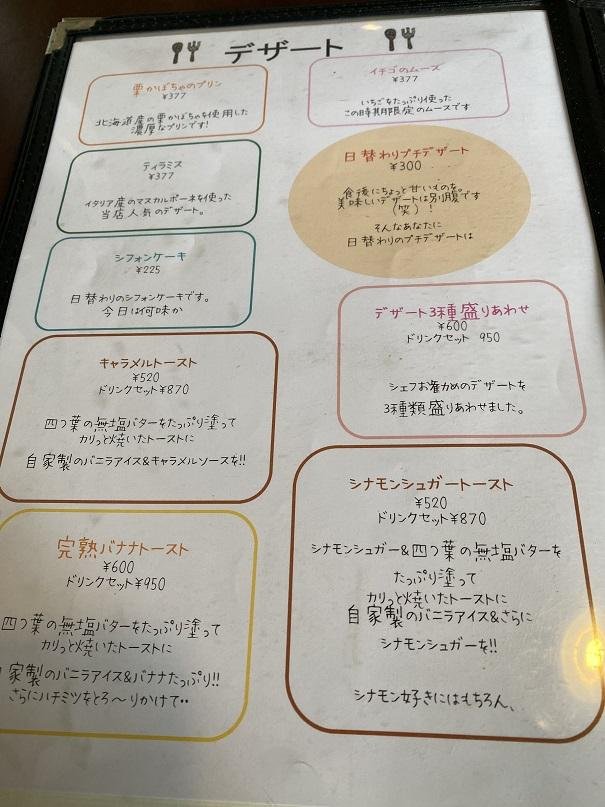 デザート
栗かぼちゃのプリン
¥377
北海道産の栗かぼちゃを使用した
濃厚なプリンです!
ティラミス
¥377
イタリア産のマスカルポーネを使った
当店人気のデザート。
シフォンケーキ
¥225
日替わりのシフォンケーキです。
今日は何味か
キャラメルトースト
¥520
ドリンクセット¥870
四つ葉の無塩バターをたっぷり塗って
カリっと焼いたトーストに
自家製のバニラアイス&キャラメルソースを!!
完熟バナナトースト
¥600
ドリンクセット¥950
四つ葉の無塩バターをたっぷり塗って
カリっと焼いたトーストに
家製のバニラアイス&バナナたっぷり!!
さらにハチミツをとろ〜りかけて・・
イチゴのムース
¥377
いちごをたっぷり使った
この時期限定のムースです
日替わりプチデザート
¥300
食後にちょっと甘いものを。
美味しいデザートは別腹です
(笑)!
そんなあなたに
日替わりのプチデザートは
デザート3種盛りあわせ
¥600
ドリンクセット 950
シェフお薦めのデザートを
3種類盛りあわせました。
シナモンシュガートースト
¥520
ドリンクセット¥870
シナモンシュガー&四つ葉の無塩バターを
たっぷり塗って
カリっと焼いたトーストに
自家製のバニラアイス&さらに
シナモンシュガーを!!
シナモン好きにはもちろん、